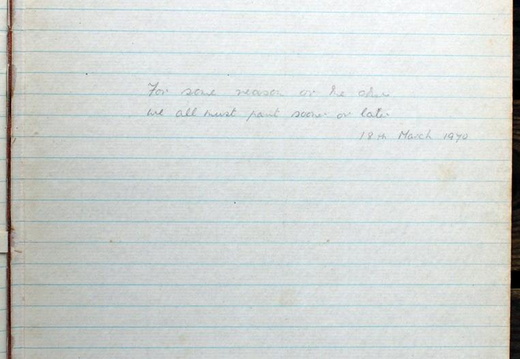 For some reason or the other
we all must part sooner or later
18th March 1970